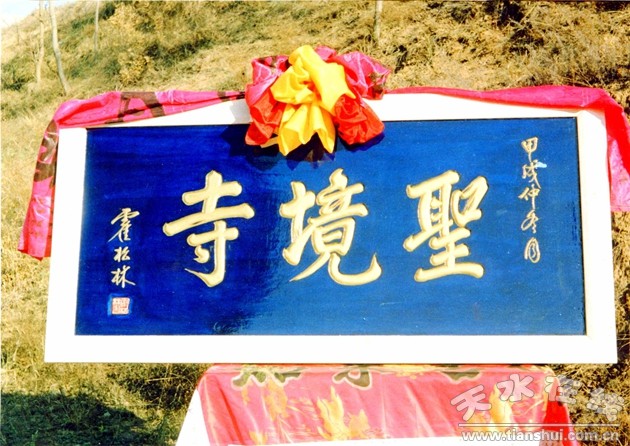 聖境寺
甲戌仲冬月
霍松林
天水在线
www.tianshui.com.cn